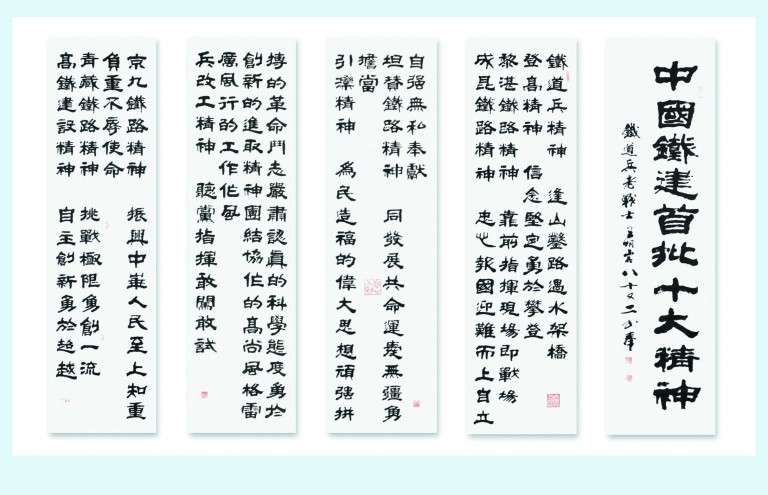 中國鐵建首批十大精神
鐵道兵老戰士 八十又二
鐵道兵精神 逢山鑿路遇水架橋
登高精神 信念堅定勇於攀登
黎湛鐵路精神 靠前指揮現場即戰場
成昆鐵路精神 忠心報國迎難而上自立
自强無私奉獻
坦贊鐵路精神 同發展共命運愛無疆勇
擔當
引灤精神 為民造福的偉大思想頑强拼
搏的革命鬥志嚴肅認真的科學態度勇於
創新的進取精神團結協作的高尚風格雷
厲風行的工作作風
兵改工精神 聽黨指揮敢闖敢試
京九鐵路精神 振興中華人民至上知重
負重不辱使命
青藏鐵路精神 挑戰極限勇創一流
高鐵建設精神 自主創新勇於超越